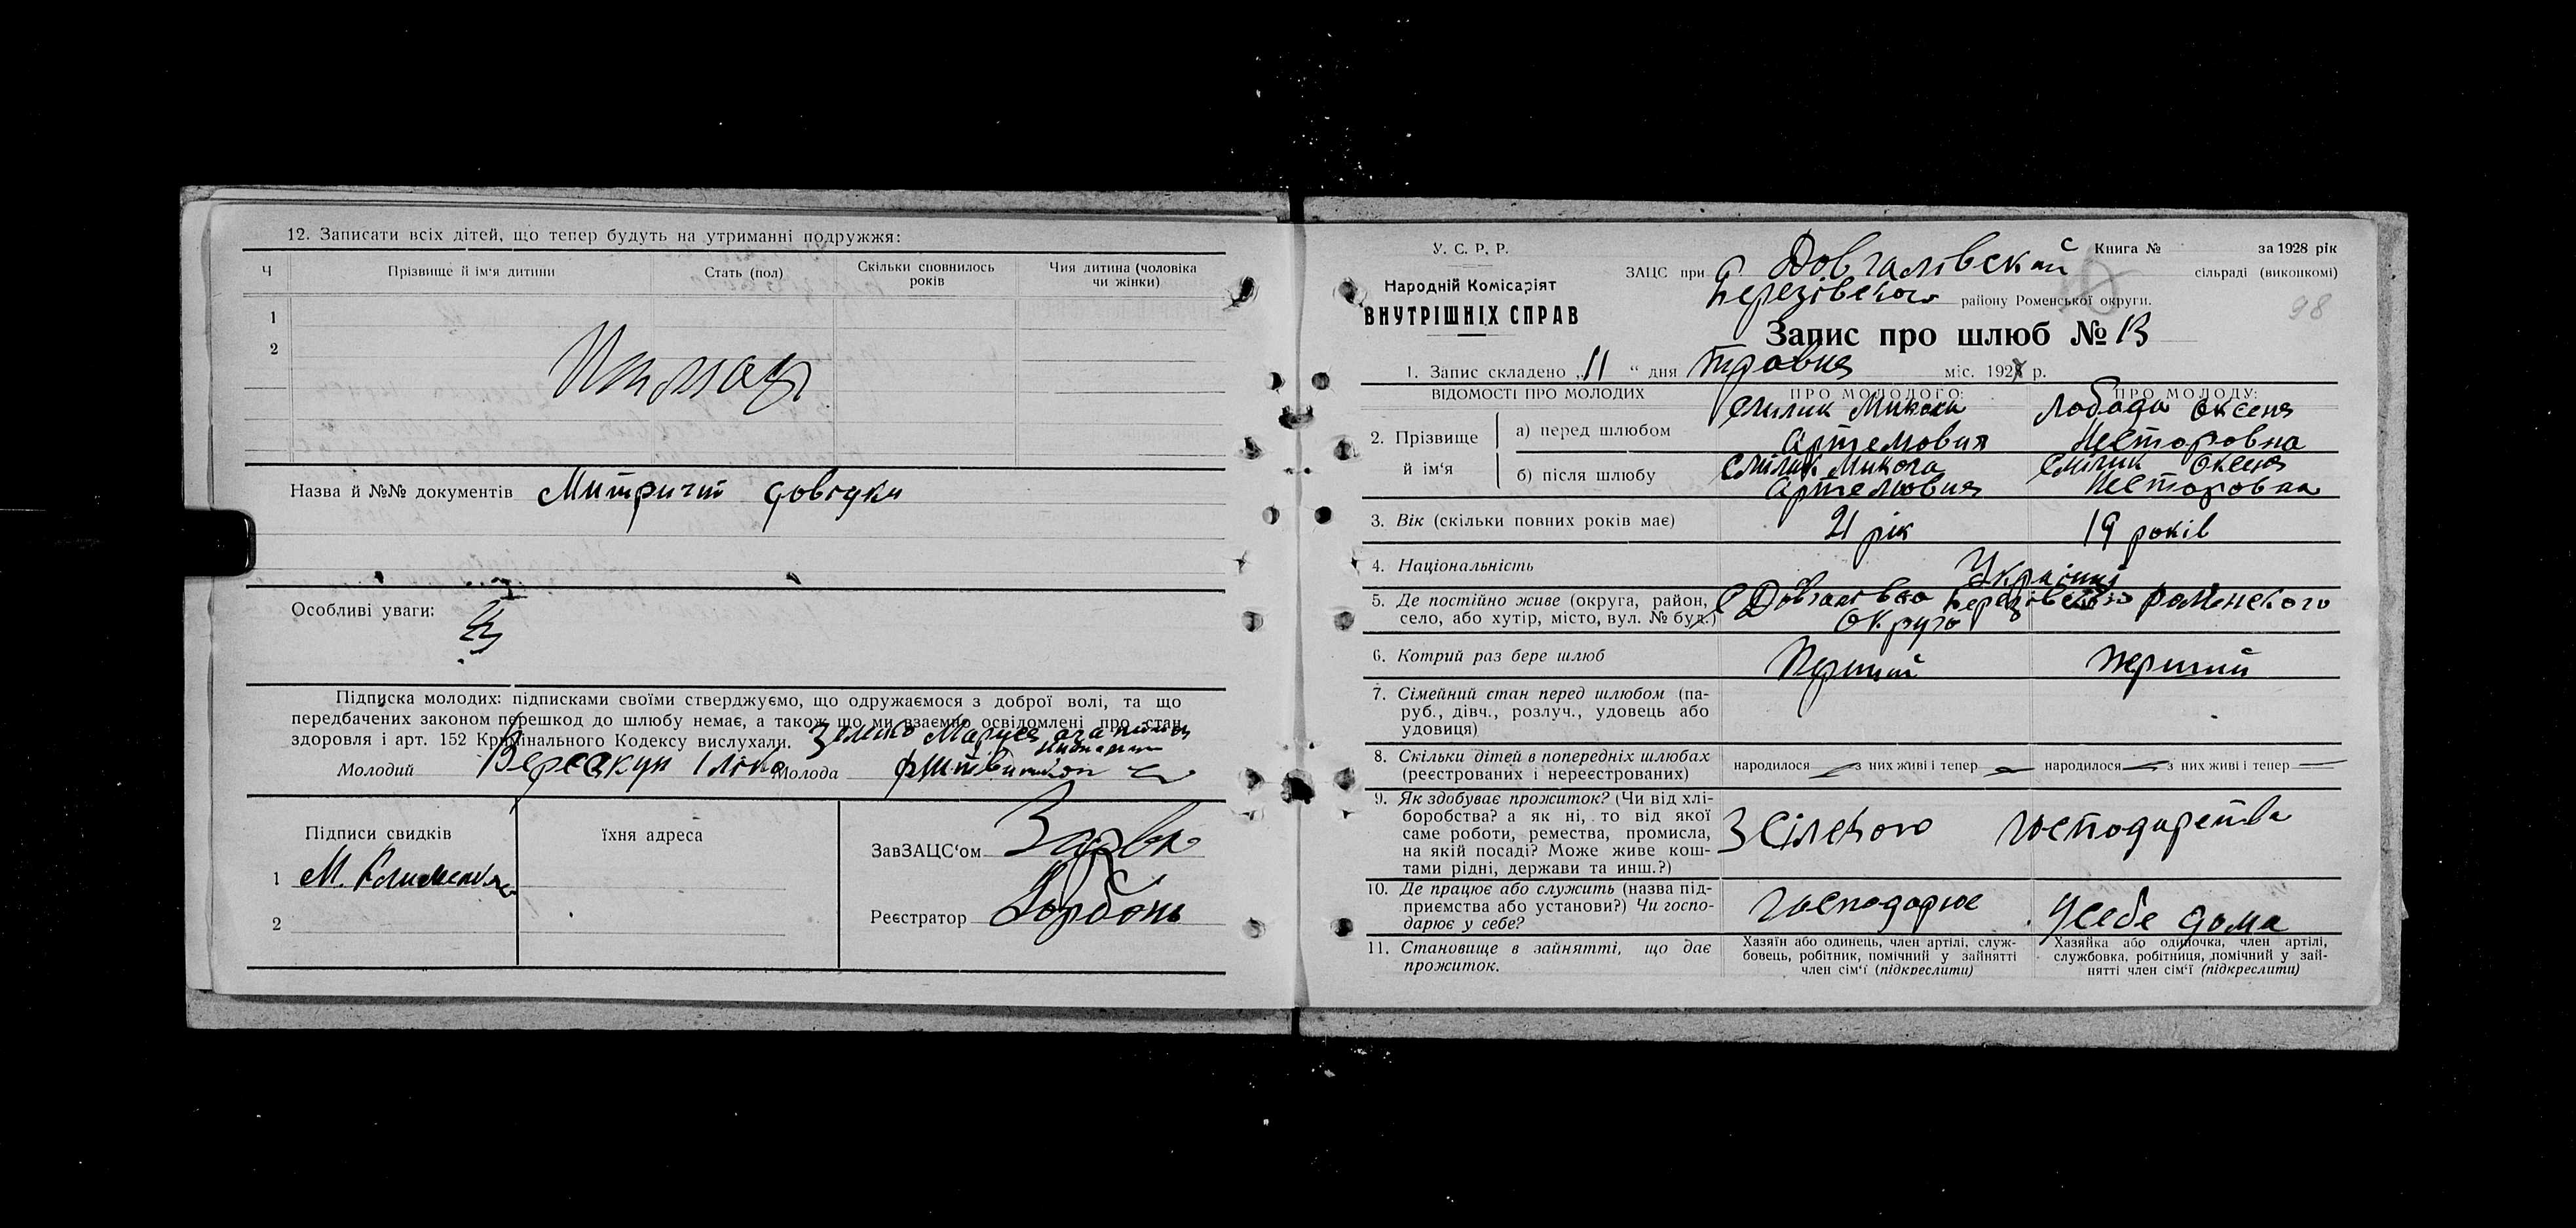 12. Записати всіх дітей, що тепер будуть на утриманні подружжя:
Ч
Прізвище й ім'я дитини
Стать (пол)
Скільки сповнилось
років
Чия дитина (чоловіка
чи жінки)
1
2
Назва й №№ документів
довідки
Особливі уваги:
Підписка молодих: підписками своїми стверджуємо, що одружаємося з доброї волі, та що
передбачених законом перешкод до шлюбу немає, а також що ми взаємно освідомлені про стан
здоровля і арт. 152 Кримінального Кодексу вислухали.
Молодий
Молода
Підписи свидків
їхня адреса
1
2
ЗавЗАЦС'ом
Реєстратор
У. С. Р. Р.
Народній Комісаріят
ВНУТРІШНІХ СПРАВ
ЗАЦС при С Довгалівской
Книга №
за 1928 рік
сільраді (виконкомі)
Березівського району Роменської округи.
98
Запис про шлюб № 13
1. Запис складено „11“ дня травня міс. 1928 р.
ВІДОМОСТІ ПРО МОЛОДИХ
ПРО МОЛОДОГО:
ПРО МОЛОДУ:
2. Прізвище й ім'я
а) перед шлюбом
Смілик Микола
Артемовия
Лобода Оксеня
Несторовна
б) після шлюбу
Смілик Микола
Артемовия
Смілик Оксеня
Несторовна
3. Вік (скільки повних років має)
21 рік
19 років
4. Національність
Україниі
5. Де постійно живе (округа, район,
село, або хутір, місто, вул. № буд.)
С Довгалівка Роменського
Округи
6. Котрий раз бере шлюб
Перший
перший
7. Сімейний стан перед шлюбом (па-
руб., дівч., розлуч., удовець або
удовиця)
8. Скільки дітей в попередніх шлюбах
(реєстрованих і нереєстрованих)
народилося — з них живі і тепер —
народилося — з них живі і тепер —
9. Як здобуває прожиток? (Чи від хлі-
боробства? а як ні, то від якої
саме роботи, ремества, промисла,
на якій посаді? Може живе кош-
тами рідні, держави та инш.?)
З сілского господарства
10. Де працює або служить (назва під-
приємства або установи?) Чи госпо-
дарює у себе?
Господарює
Усебе дома
11. Становище в зайнятті, що дає
прожиток.
Хазяїн або одинець, член артілі, служ-
бовець, робітник, помічний у зайнятті
член сім'ї (підкреслити)
Хазяйка або одиночка, член артілі,
службовка, робітниця, помічний у зай-
нятті член сім'ї (підкреслити)